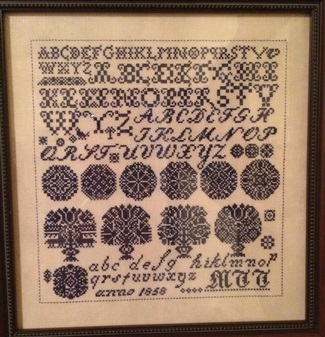 ABCDEFGHIKLMNOPQRSTVV
WXYZ ABCDEFGHI
KLMNOPQRSTV
WXYZ ABCDEFGH
IKLMNOP
QRSTUVWXYZ
abc defg hiklmnop
qrstuvwxyz MTT
anno 1858